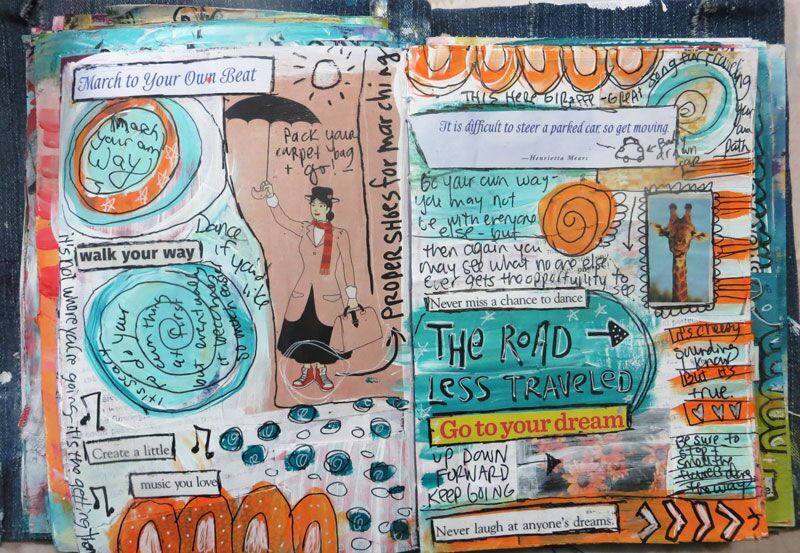 March to Your Own Beat
March
your own
way!
Pack your
carpet bag
+ go!
PROPER SHOES for marching
walk your way
Dance
if you'd
it's scary
to do your
own thing
at first
but eventually
it becomes
so much easier
it's not where you're going, it's the getting there
Create a little
music you love
THIS HERE GIRAFFE - GREAT
song for traveling
your own
path
It is difficult to steer a parked car, so get moving.
—Henrietta Mears
Badly
drawn
car
Be your own way-
you may not
be with everyone
else - but
then again you
may see what no one else
ever gets the opportunity to see
Never miss a chance to dance
THE ROAD
LESS TRAVELED
It's cheesy
sounding
I know
but it's
true.
Go to your dream
UP DOWN
FORWARD
KEEP GOING
Be sure to
stop +
smell the
flowers along
the way
Never laugh at anyone's dreams.